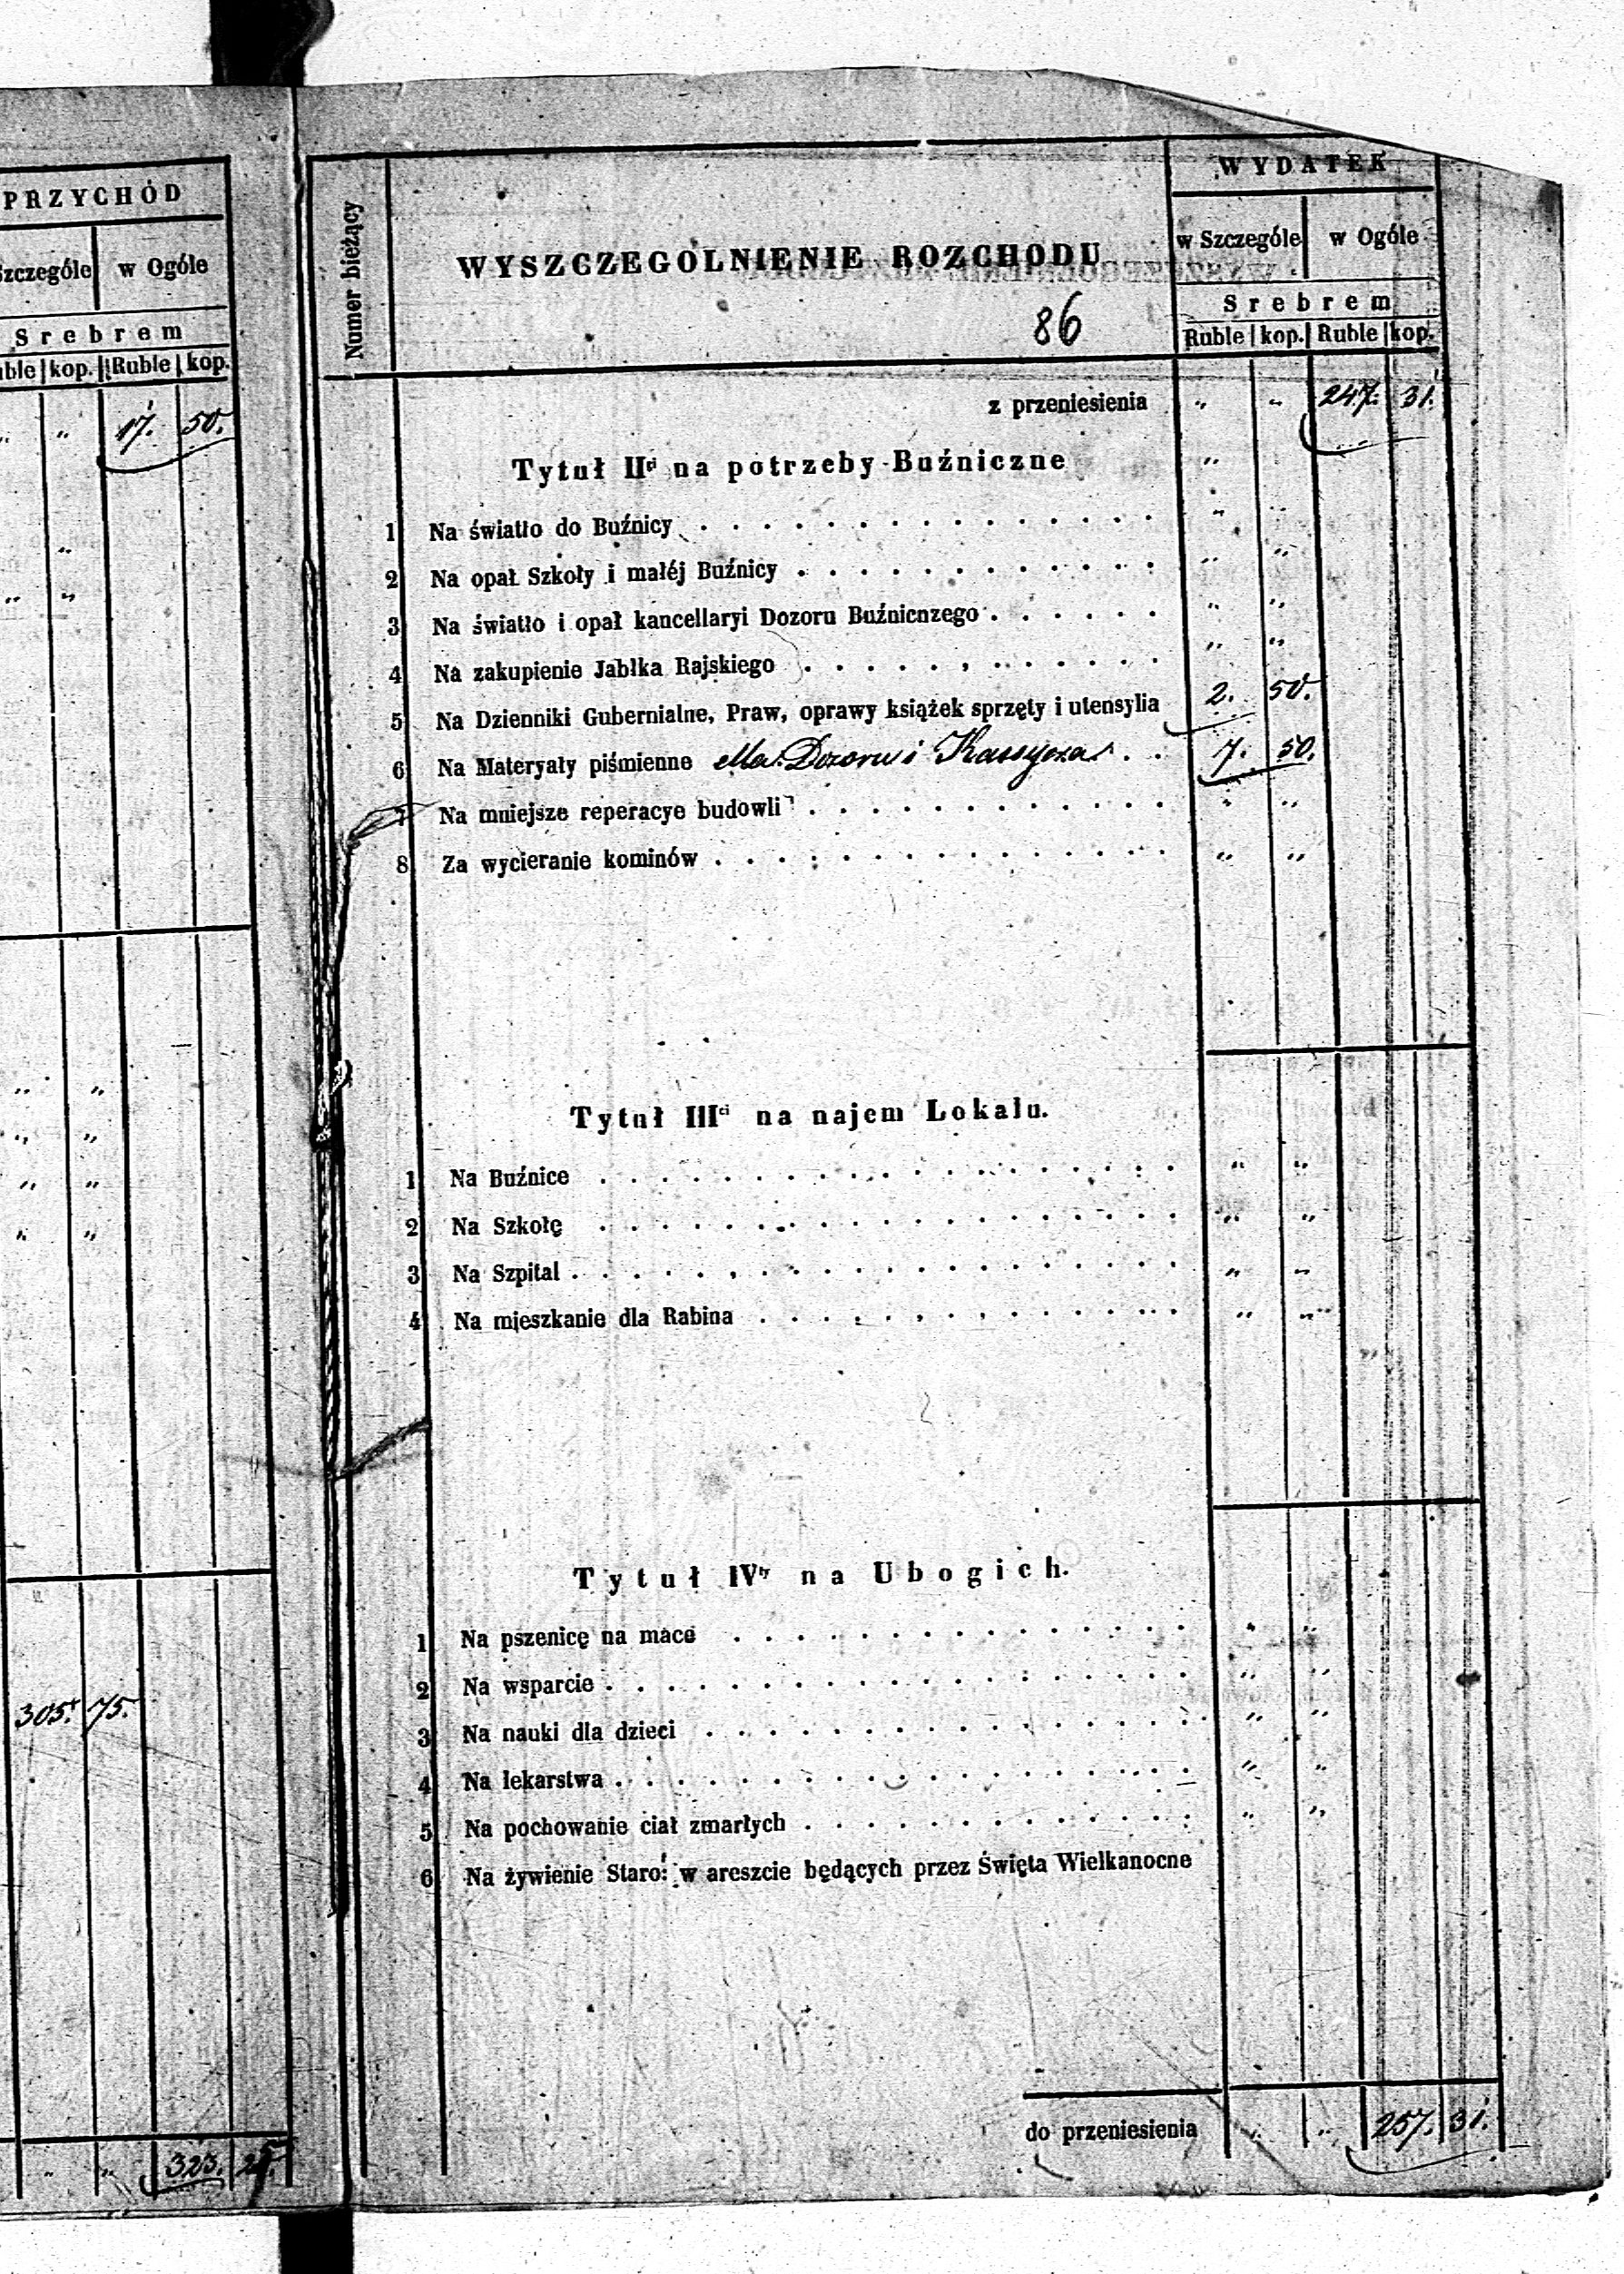 PRZYCHÓD
Szczególe w Ogóle
Srebrem
kop. Ruble kop.
„ „ 17. 50.
„
„ „
„ „
„ „
„ „
„ „
305. 75.
„ „ 323. 25.
Numer bieżący
WYSZCZEGÓLNIENIE ROZCHODU
86
WYDATEK
w Szczególe w Ogóle
Srebrem
Ruble kop. Ruble kop.
z przeniesienia „ „ 247. 31.
Tytuł IIgi na potrzeby Buźniczne „
1 Na światło do Buźnicy . . . . „ „
2 Na opał Szkoły i małéj Buźnicy . . . . „ „
3 Na światło i opał kancellaryi Dozoru Buźnicnzego . . . . „ „
4 Na zakupienie Jabłka Rajskiego . . . . „ „
5 Na Dzienniki Gubernialne, Praw, oprawy książek sprzęty i utensylia 2. 50.
6 Na Materyały piśmienne dla Dozoru i Kassyera . . 7. 50.
7 Na mniejsze reperacye budowli . . . . „ „
8 Za wycieranie kominów . . . . „ „
Tytuł IIIci na najem Lokalu.
1 Na Buźnice . . . . „ „
2 Na Szkołę . . . . „ „
3 Na Szpital . . . . „ „
4 Na mieszkanie dla Rabina . . . . „ „
Tytuł IVty na Ubogich.
1 Na pszenicę na mace . . . . „ „
2 Na wsparcie . . . . „ „
3 Na nauki dla dzieci . . . . „ „
4 Na lekarstwa . . . . „ „
5 Na pochowanie ciał zmarłych . . . . „ „
6 Na żywienie Staro: w areszcie będących przez Święta Wielkanocne
do przeniesienia „ „ 257. 31.